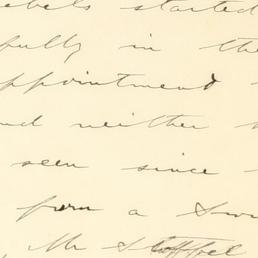 ebels started
fully in the
ppointment
nd neither
seen since
form a Sw
, Mr Stoffel